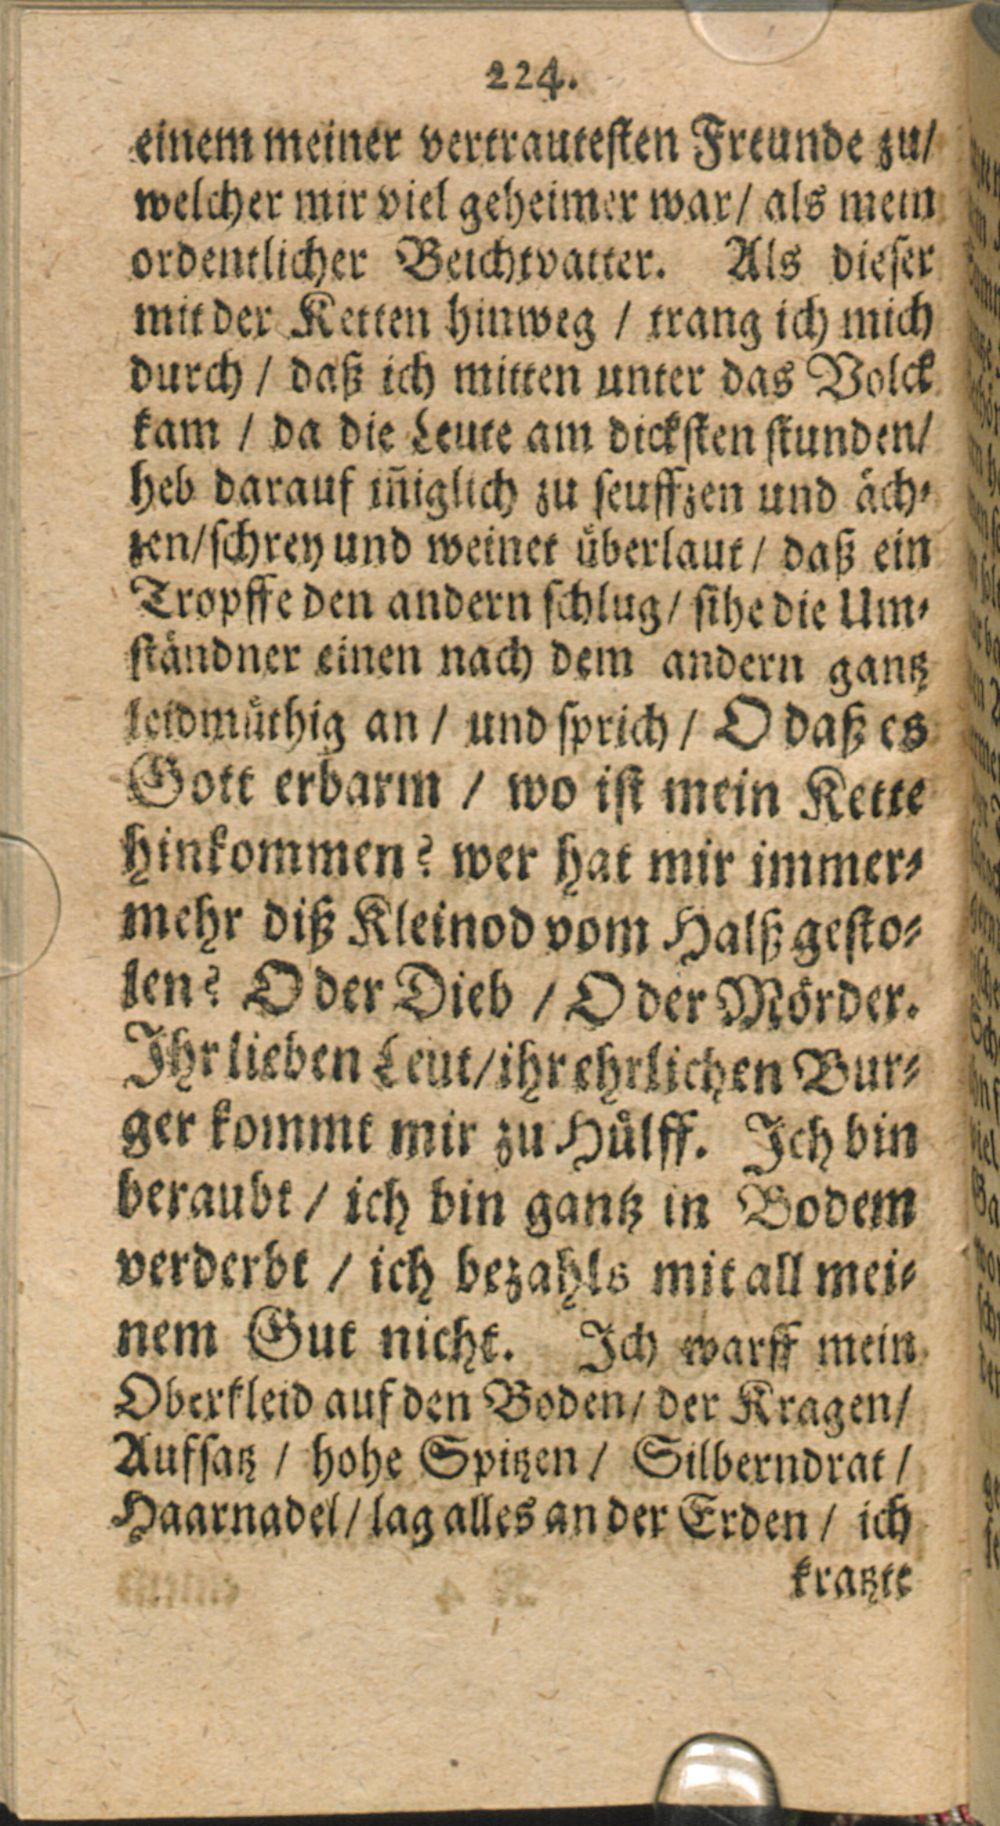 224.
einem meiner vertrautesten Freunde zu/
welcher mir viel geheimer war/ als mein
ordentlicher Beichtvatter. Als dieser
mit der Ketten hinweg / trang ich mich
durch / daß ich mitten unter das Volck
kam / da die Leute am dicksten stunden/
heb darauf iñiglich zu seuffzen und äch-
zen/schrey und weinet überlaut/ daß ein
Tropffe den andern schlug/ sihe die Um-
ständner einen nach dem andern gantz
leidmüthig an / und sprich / O daß es
Gott erbarm / wo ist mein Kette
hinkommen? wer hat mir immer-
mehr diß Kleinod vom Halß gesto-
len? O der Dieb / O der Mörder.
Ihr lieben Leut/ihr ehrlichen Bur-
ger kommt mir zu Hülff. Ich bin
beraubt / ich bin gantz in Bodem
verderbt / ich bezahls mit all mei-
nem Gut nicht. Ich warff mein
Oberkleid auf den Boden/ der Kragen/
Aufsatz / hohe Spitzen / Silberndrat /
Haarnadel/ lag alles an der Erden / ich
kratzte